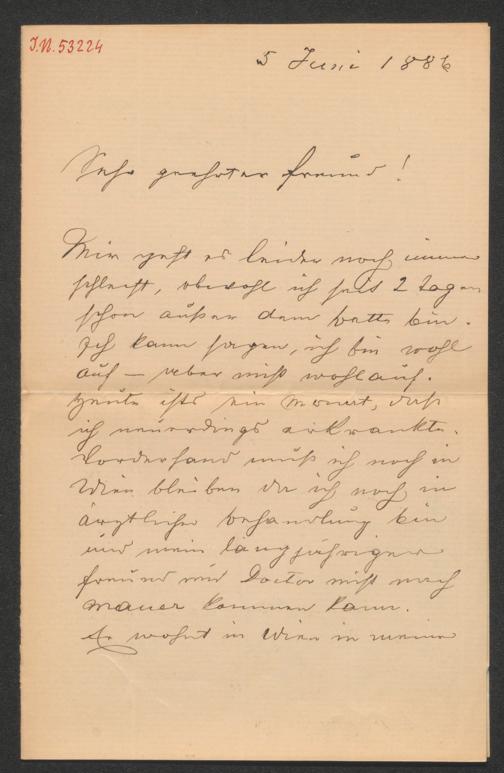 I.N. 53224
5 Juni 1886
Sehr geehrter Freund!
Mir geht es leider noch immer
schlecht, obwohl ich seit 2 Tagen
schon außer dem Bette bin.
Ich kann sagen, ich bin wohl
auf — aber nicht wohlauf.
Heute ists ein Monat, daß
ich neuerdings erkrankte.
Vorderhand muß ich noch in
Wien bleiben da ich noch in
ärztlicher Behandlung bin
und mein langjähriger
Freund und Doctor nicht nach
Mauer kommen kann.
Er wohnt in Wien in meine